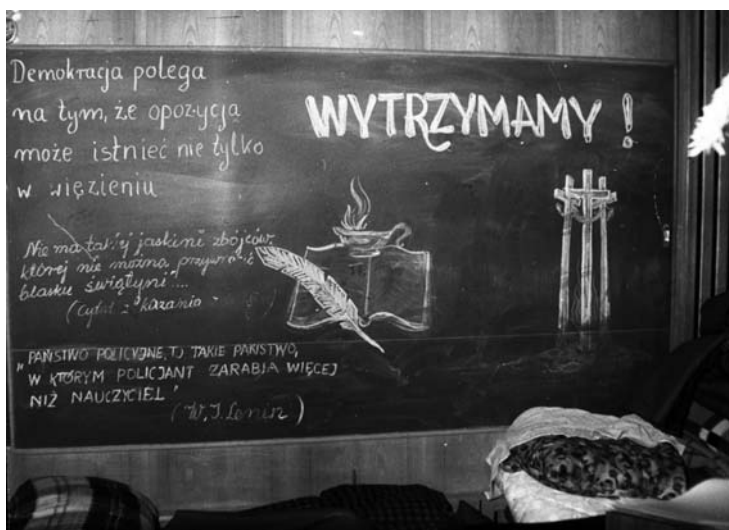 Demokracja polega
na tym, że opozycja
może istnieć nie tylko
w więzieniu
WYTRZYMAMY !
Nie ma takiej jaskini zbójców,
której nie można przywrócić
blasku świątyni"...
(cytat z kazania
"PAŃSTWO POLICYJNE, TO TAKIE PAŃSTWO,
W KTÓRYM POLICJANT ZARABIA WIĘCEJ
NIŻ NAUCZYCIEL"
(W. I. Lenin)